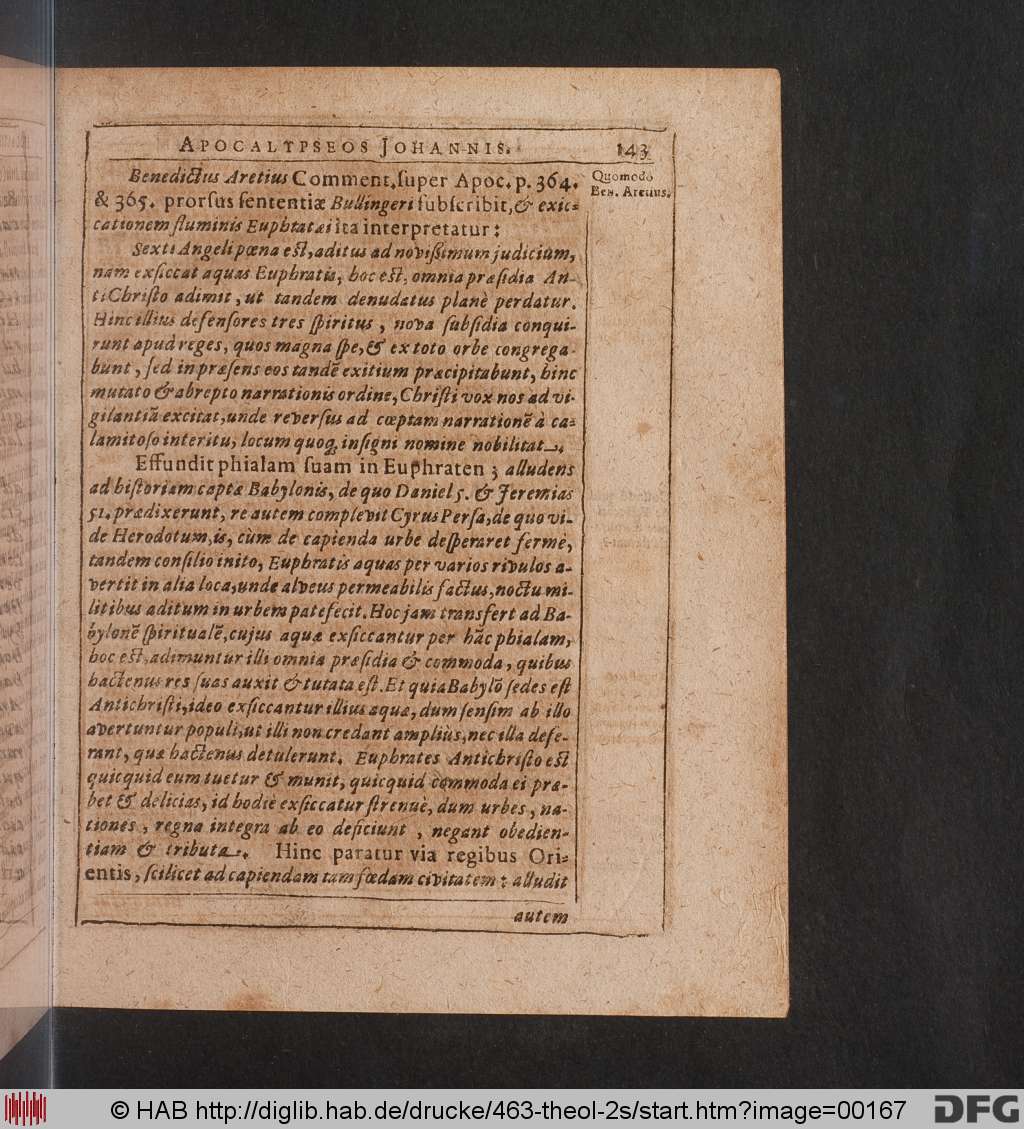 APOCALYPSEOS JOHANNIS. 143
Benedictus Aretius Comment. ſuper Apoc. p. 364.
& 365. prorſus ſententiæ Bullingeri ſubſcribit, & exic-
cationem fluminis Euphratæi ita interpretatur:
Quomodò
Ben. Aretius.
Sexti Angeli pœna eſt, aditus ad noviſſimum judicium,
nam exſiccat aquas Euphratis, hoc eſt, omnia præſidia An-
tiChriſto adimit, ut tandem denudatus planè perdatur.
Hinc illius defenſores tres ſpiritus, nova ſubſidia conqui-
runt apud reges, quos magna ſpe, & ex toto orbe congrega-
bunt, ſed in præſens eos tandē exitium præcipitabunt, hinc
mutato & abrepto narrationis ordine, Chriſti vox nos ad vi-
gilantiā excitat, unde reverſus ad cœptam narrationē à ca-
lamitoſo interitu, locum quoq; inſigni nomine nobilitat.
Effundit phialam ſuam in Euphraten; alludens
ad hiſtoriam captæ Babylonis, de quo Daniel 5. & Jeremias
51. prædixerunt, re autem complevit Cyrus Perſa, de quo vi-
de Herodotum, is, cùm de capienda urbe deſperaret fermè,
tandem conſilio inito, Euphratis aquas per varios rivulos a-
vertit in alia loca, unde alveus permeabilis factus, noctu mi-
litibus aditum in urbem patefecit. Hoc jam transfert ad Ba-
bylonē ſpiritualē, cujus aquæ exſiccantur per hāc phialam,
hoc eſt, adimuntur illi omnia præſidia & commoda, quibus
hactenus res ſuas auxit & tutata eſt. Et quia Babylō ſedes eſt
Antichriſti, ideo exſiccantur illius aquæ, dum ſenſim ab illo
avertuntur populi, ut illi non credant ampliùs, nec illa defe-
rant, quæ hactenus detulerunt. Euphrates Antichriſto eſt
quicquid eum tuetur & munit, quicquid commoda ei præ-
bet & delicias, id hodiè exſiccatur ſtrenuè, dum urbes, na-
tiones, regna integra ab eo deficiunt, negant obedien-
tiam & tributa. Hinc paratur via regibus Ori-
entis, ſcilicet ad capiendam tam fœdam civitatem: alludit
autem
© HAB http://diglib.hab.de/drucke/463-theol-2s/start.htm?image=00167
DFG